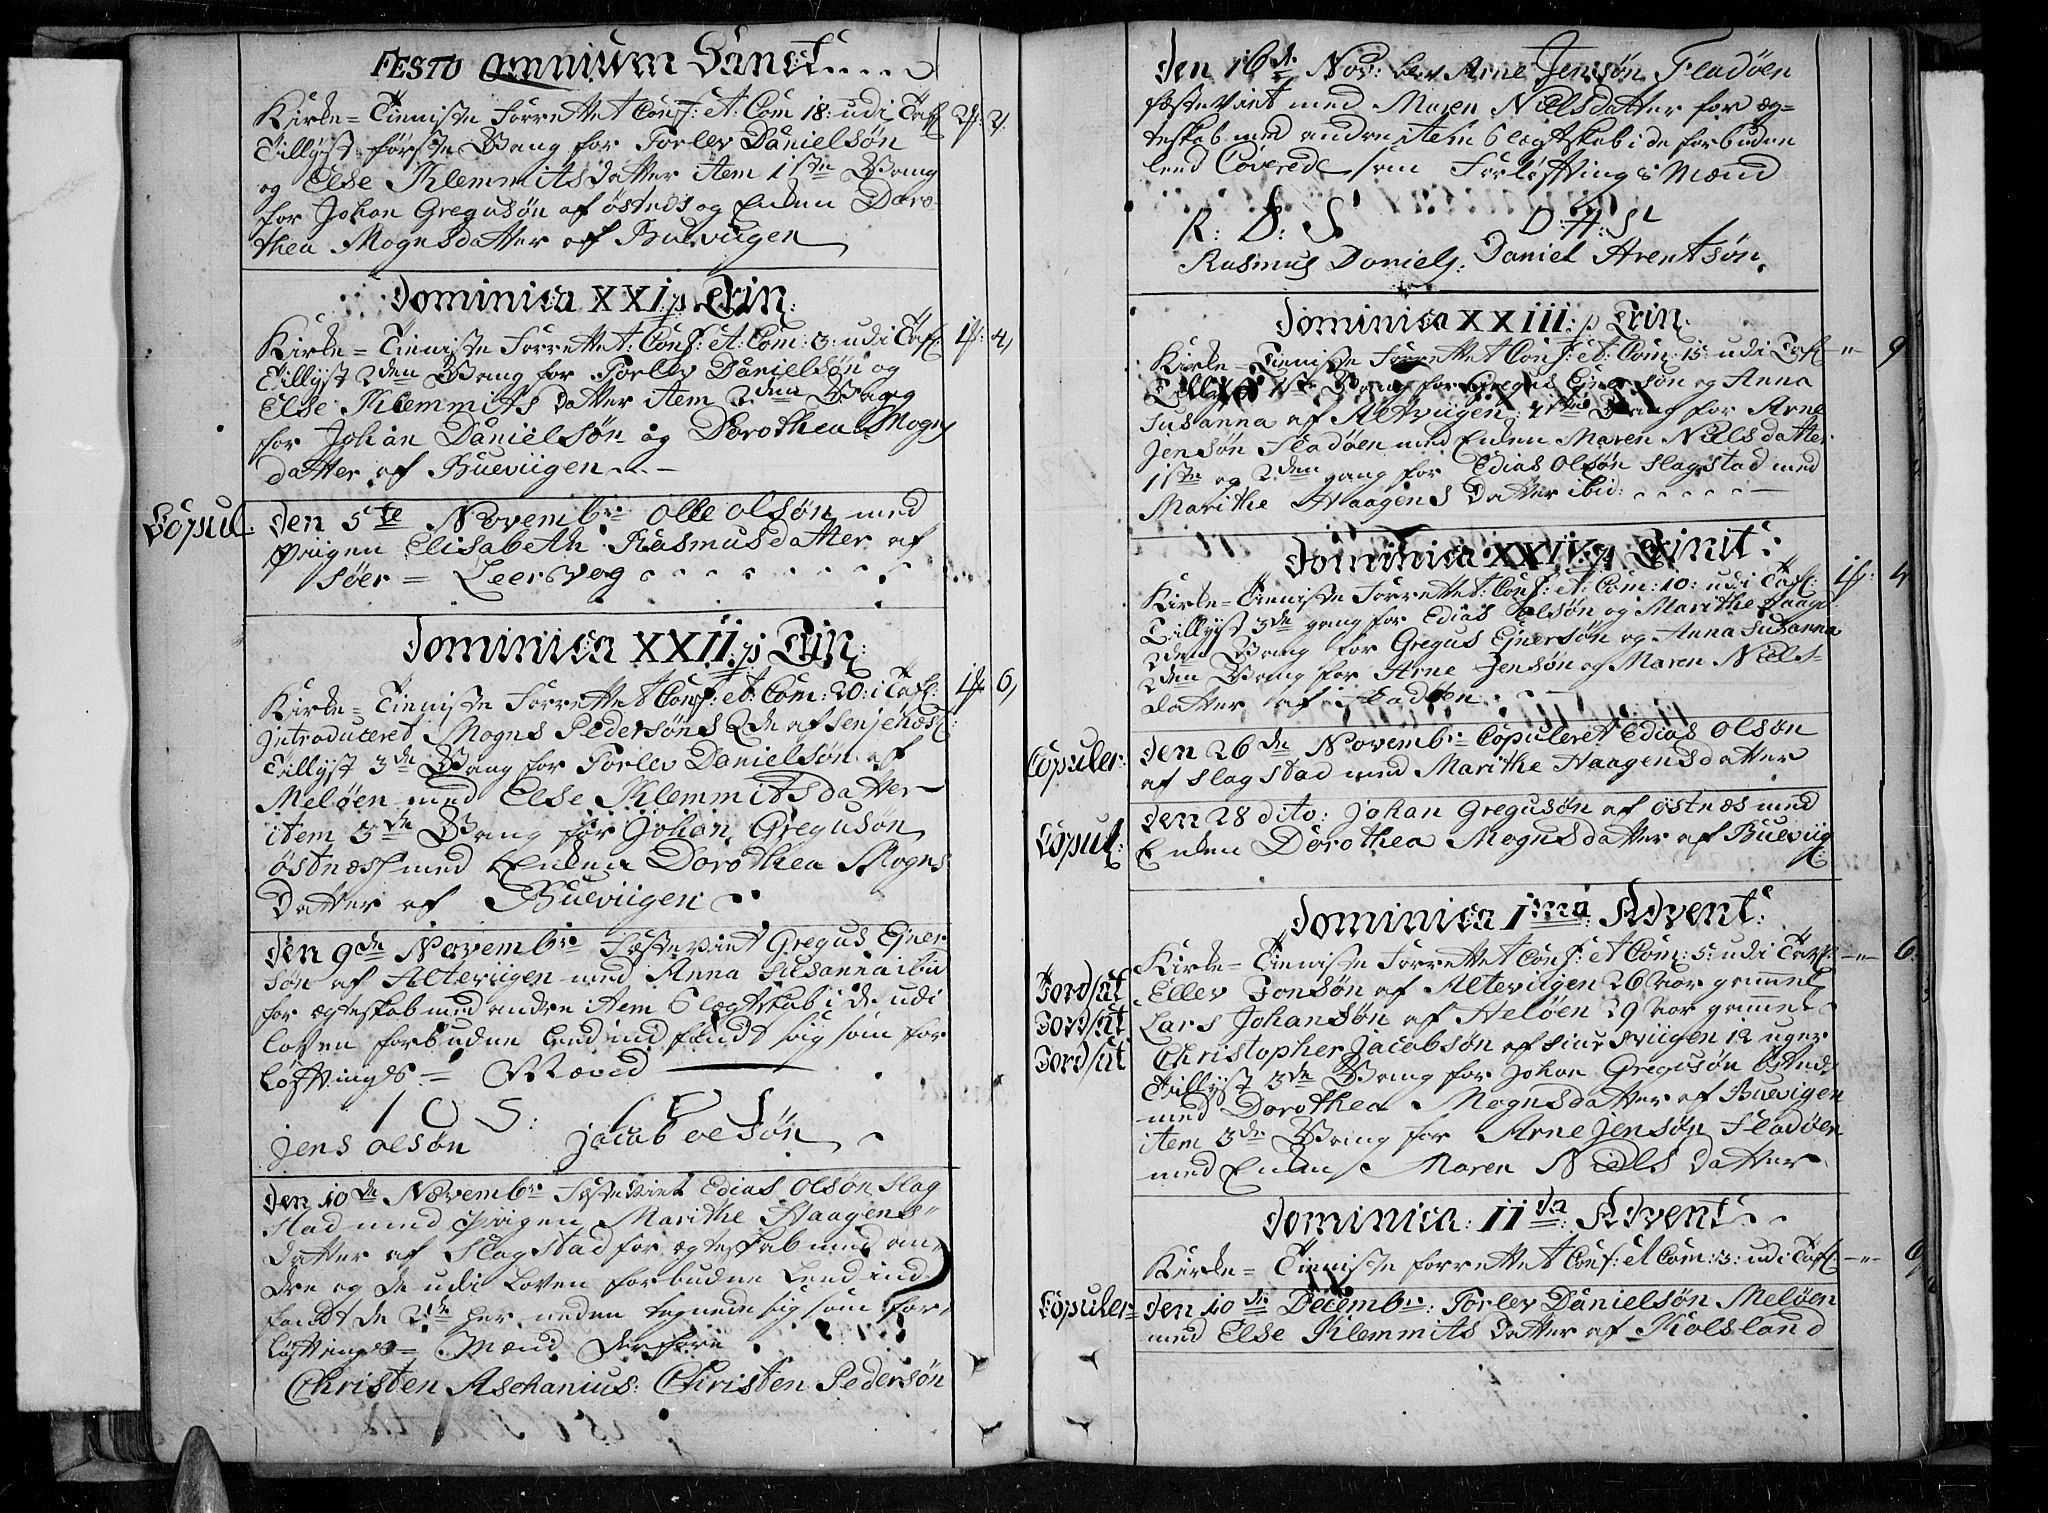 FESTO omnium Sanct:
Kirke-Tieniste Forrettet Conf: et: Com 18: udi Tafl 2 2
Tillyst første Gang for Torlev Danielsøn
og Else Klemmitsdatter item 1ste Gang
for Johan Gregusøn af østnes og Enken Doro-
thea Mognsdatter af Bueviigen
Dominica XXI p Trin:
Kirke-Tieniste Forrettet: Conf: et: Com: 3: udi Tafl: 1 4
Tillyst 2den Gang for Torlev Danielsøn og
Else Klemmits datter item 2den Gang
for Johan Danielsøn og Dorothea Mogns
datter af Bueviigen
Copul:
Den 5te Novembr: Olle Olsøn med
Pigen Elisabeth Rasmusdatter af
Leervog
Dominica XXII: p Trin:
Kirke-Tieniste Forrettet Conf: et: Com: 20: i Tafl: 1 6
Introduceret Mogns Pedersøns af
Tillyst 3de Gang for Torlev Danielsøn af
Meløen med Else Klemmitsdatter
item 3de Gang for Johan Gregusøn
østnæs med Enken Dorothea Mogns
Datter af Bueviigen
Den 9de Novembr: Fæstevint Gregus Ejner
søn af Alteviigen med Anna Susanna ibid
for ægteskab med andre item Slægtskab i de udi
loven forbudne leed indfandt sig som for
løftnings-Mænd
I O S: I O S
Jens olsøn Jacob olsøn
Den 10de Novembr: Fæstevint Edias Olsøn Slag
stad med Pigen Marithe Haagens
datter af Slagstad for ægteskab med an
dre og de udi loven forbudne leed ind
fandt de 2de her neden tegnede sig som for
løftnings-Mænd
Christen Aschanius: Christen Pedersøn
Den 16de Nov: blev Arne Jensøn Fladøen
fæstevint med Maren Nielsdatter for æg-
teskab med andre item Slegtskab i de forbuden
leed Caverede som Forløftnings Mænd
R: D: S D: A: S
Rasmus Daniels: Daniel Arentsøn
Dominica XXIII: p Trin
Kirke-Tieniste Forrettet Conf: et: Com: 15: udi Tafl 9
Tillyst 1ste Gang for Gregus Ejnersøn og Anna
Susanna af Alteviigen: 1ste Gang for Arne
Jensøn Fladøen med Enken Maren Nielsdatter
1ste og 2den gang for Edias Olsøn Slagstad med
Marithe Haagens Datter ibid:
Dominica XXIV: p Trinit:
Kirke-Tieniste Forrettet: Conf: et: Com: 10: udi Tafl: 1 4
Tillyst 3de gang for Edias Olsøn og Marithe Haags
2den Gang for Gregus Ejnersøn og Anna Susanna
2den Gang for Arne Jensøn og Maren Niels-
datter af Fladøen
Copuler:
Den 26de Novembr: Copuleret Edias Olsøn
af Slagstad med Marithe Haagensdatter
Copul:
Den 28 dito: Johan Gregusøn af østnæs med
Enken Dorothea Mognsdatter af Bueviig
Dominica Ima Advent:
Kirke-Tieniste Forrettet Conf: et Com: 5: udi Tafl: 6
Jordsat Ellev Jonsøn af Alteviigen 26 aar gammel
Jordsat Lars Johansøn af Heløen 29 aar gammel
Jordsat Christopher Jacobsøn af 12 uger
Tillyst 3de Gang for Johan Gregusøn østnæs
med Dorothea Mognsdatter af Bueviigen
item 3de Gang for Arne Jensøn Fladøen
med Enken Maren Niels datter
Dominica: IIda Advent
Kirke-Tieniste forrettet Conf: et Com: 3: udi Tafl: 6
Copuler-
Den 10de Decembr: Torlev Danielsøn Meløen
med Else Klemmits datter af Kolsland